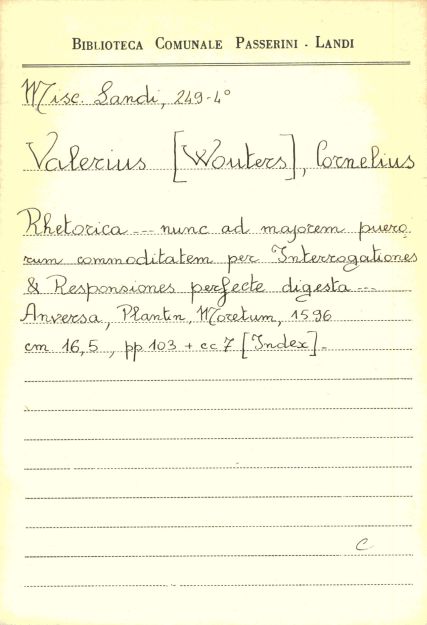 BIBLIOTECA COMUNALE PASSERINI - LANDI
Misc. Landi, 249-4°
Valerius [Wouters], Cornelius
Rhetorica --- nunc ad majorem puero
rum commoditatem per Interrogationes
& Responsiones perfecte digesta ---
Anversa, Plantin, Moretum, 1596
cm 16,5, pp 103 + cc 7 [Index].
C